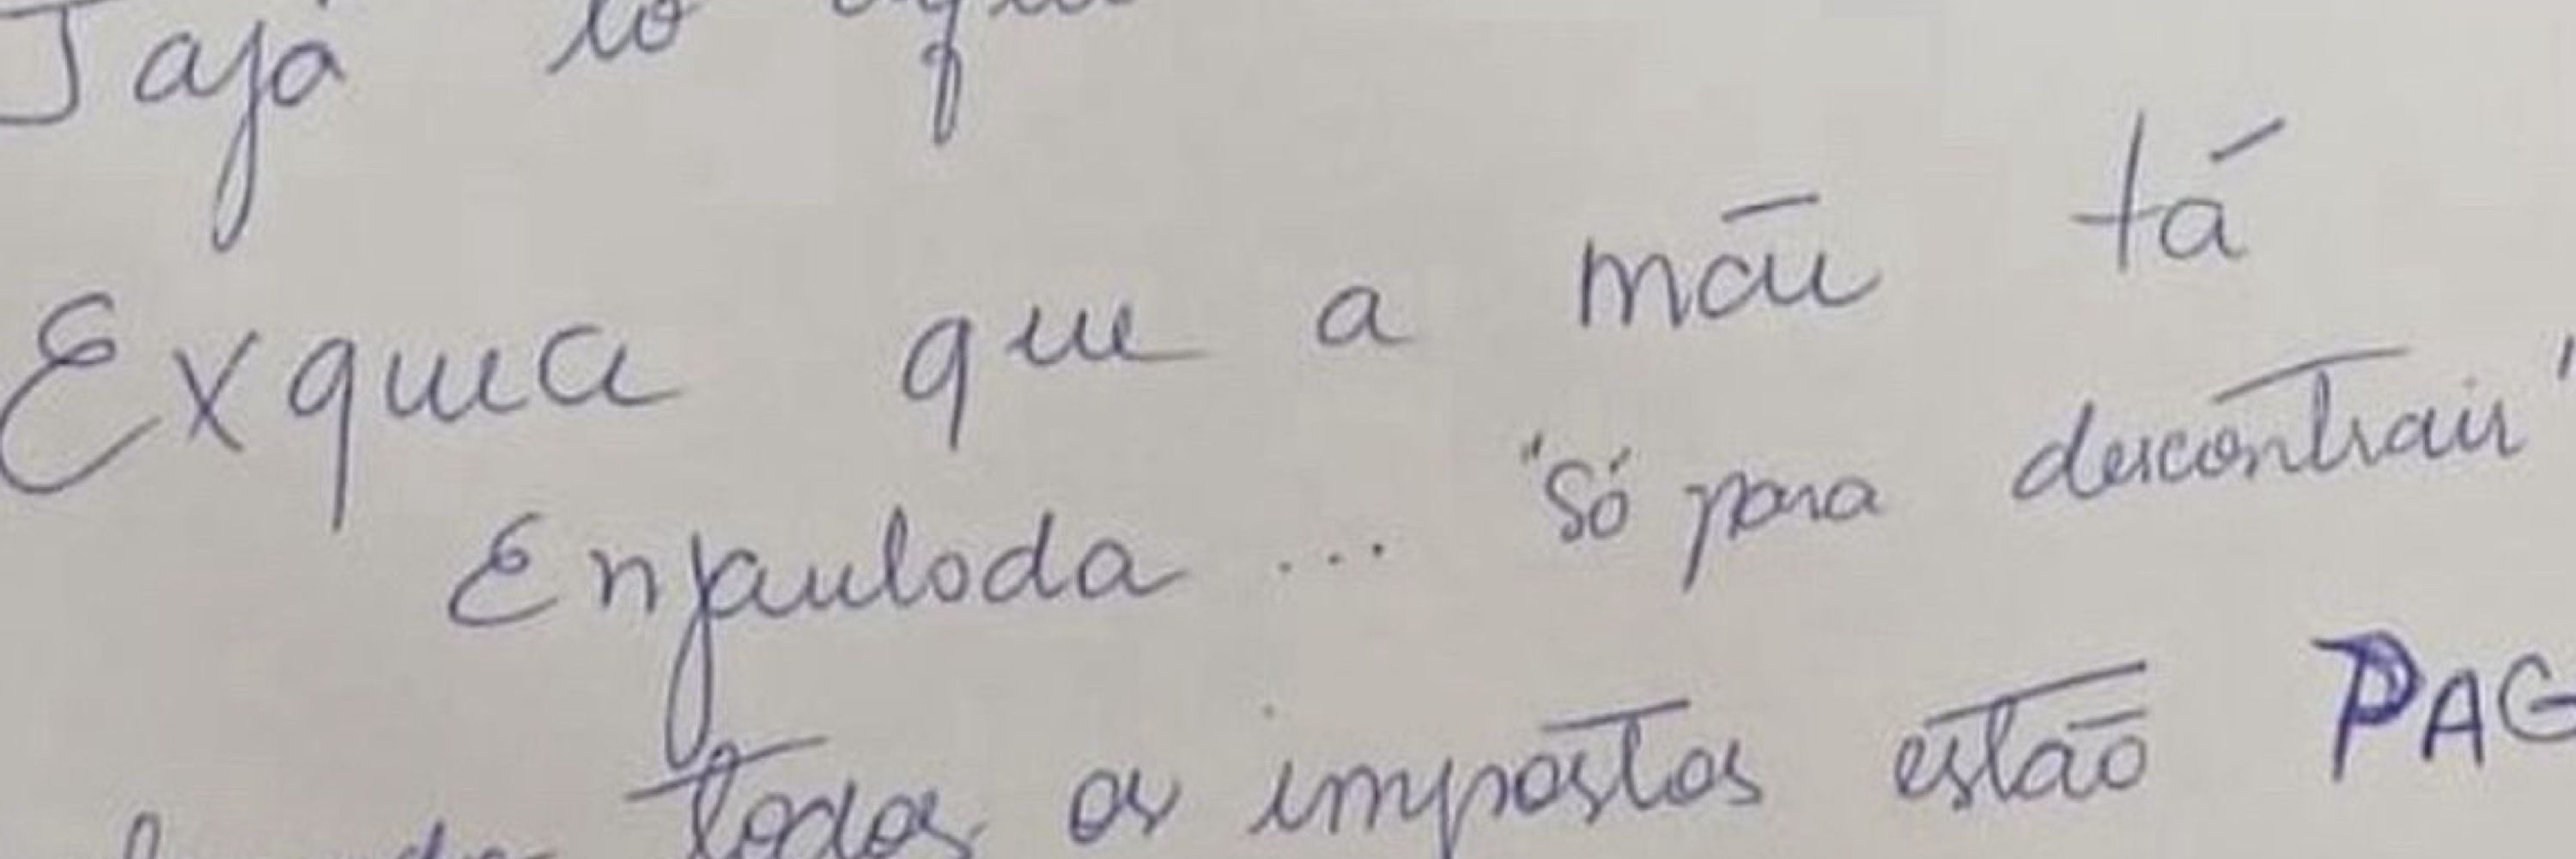 Jajá tô
Exquea que a mãe tá
Enjaulada ... "Só para descontrair"
todos os impostos estão PAG